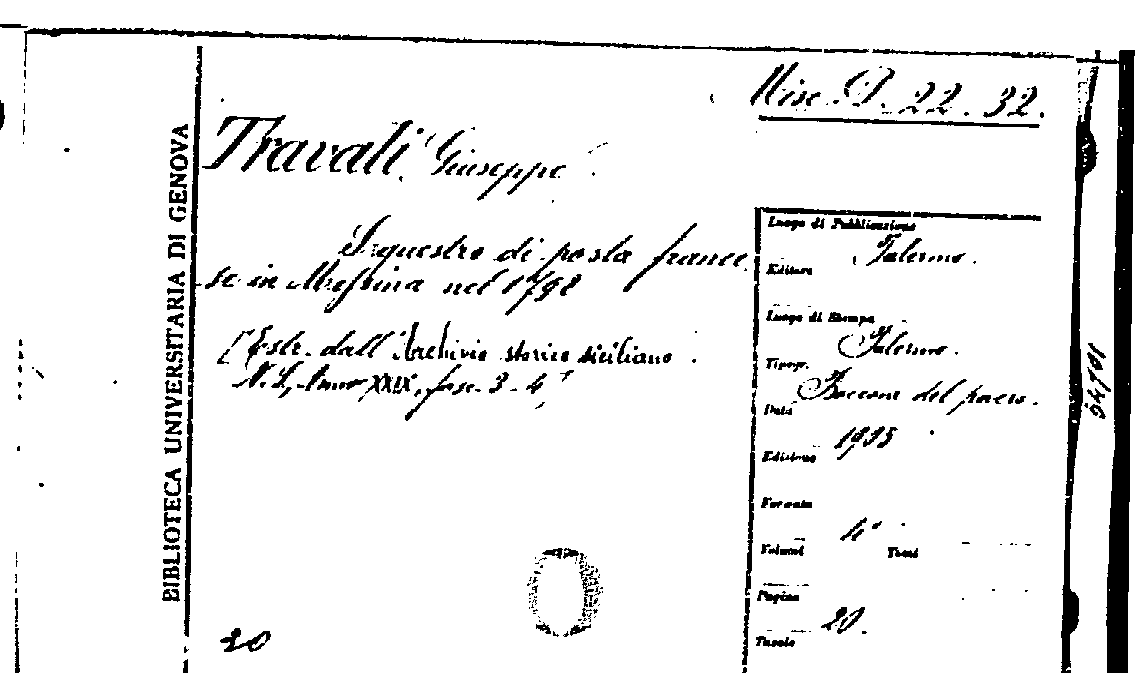 Misc. D. 22. 32.
BIBLIOTECA UNIVERSITARIA DI GENOVA
Travali Giuseppe
Sequestro di posta france
se in Messina nel 1798
[Estr. dall' Archivio storico siciliano.
N. S., Anno XXIX, fasc. 3-4,
Luogo di Pubblicazione
Palermo.
Editore
Luogo di Stampa
Palermo.
Tipogr.
Boccone del povero.
Data
Edizione
Formato
4°
Volumi Tomi
Pagine
20.
Tavole
20